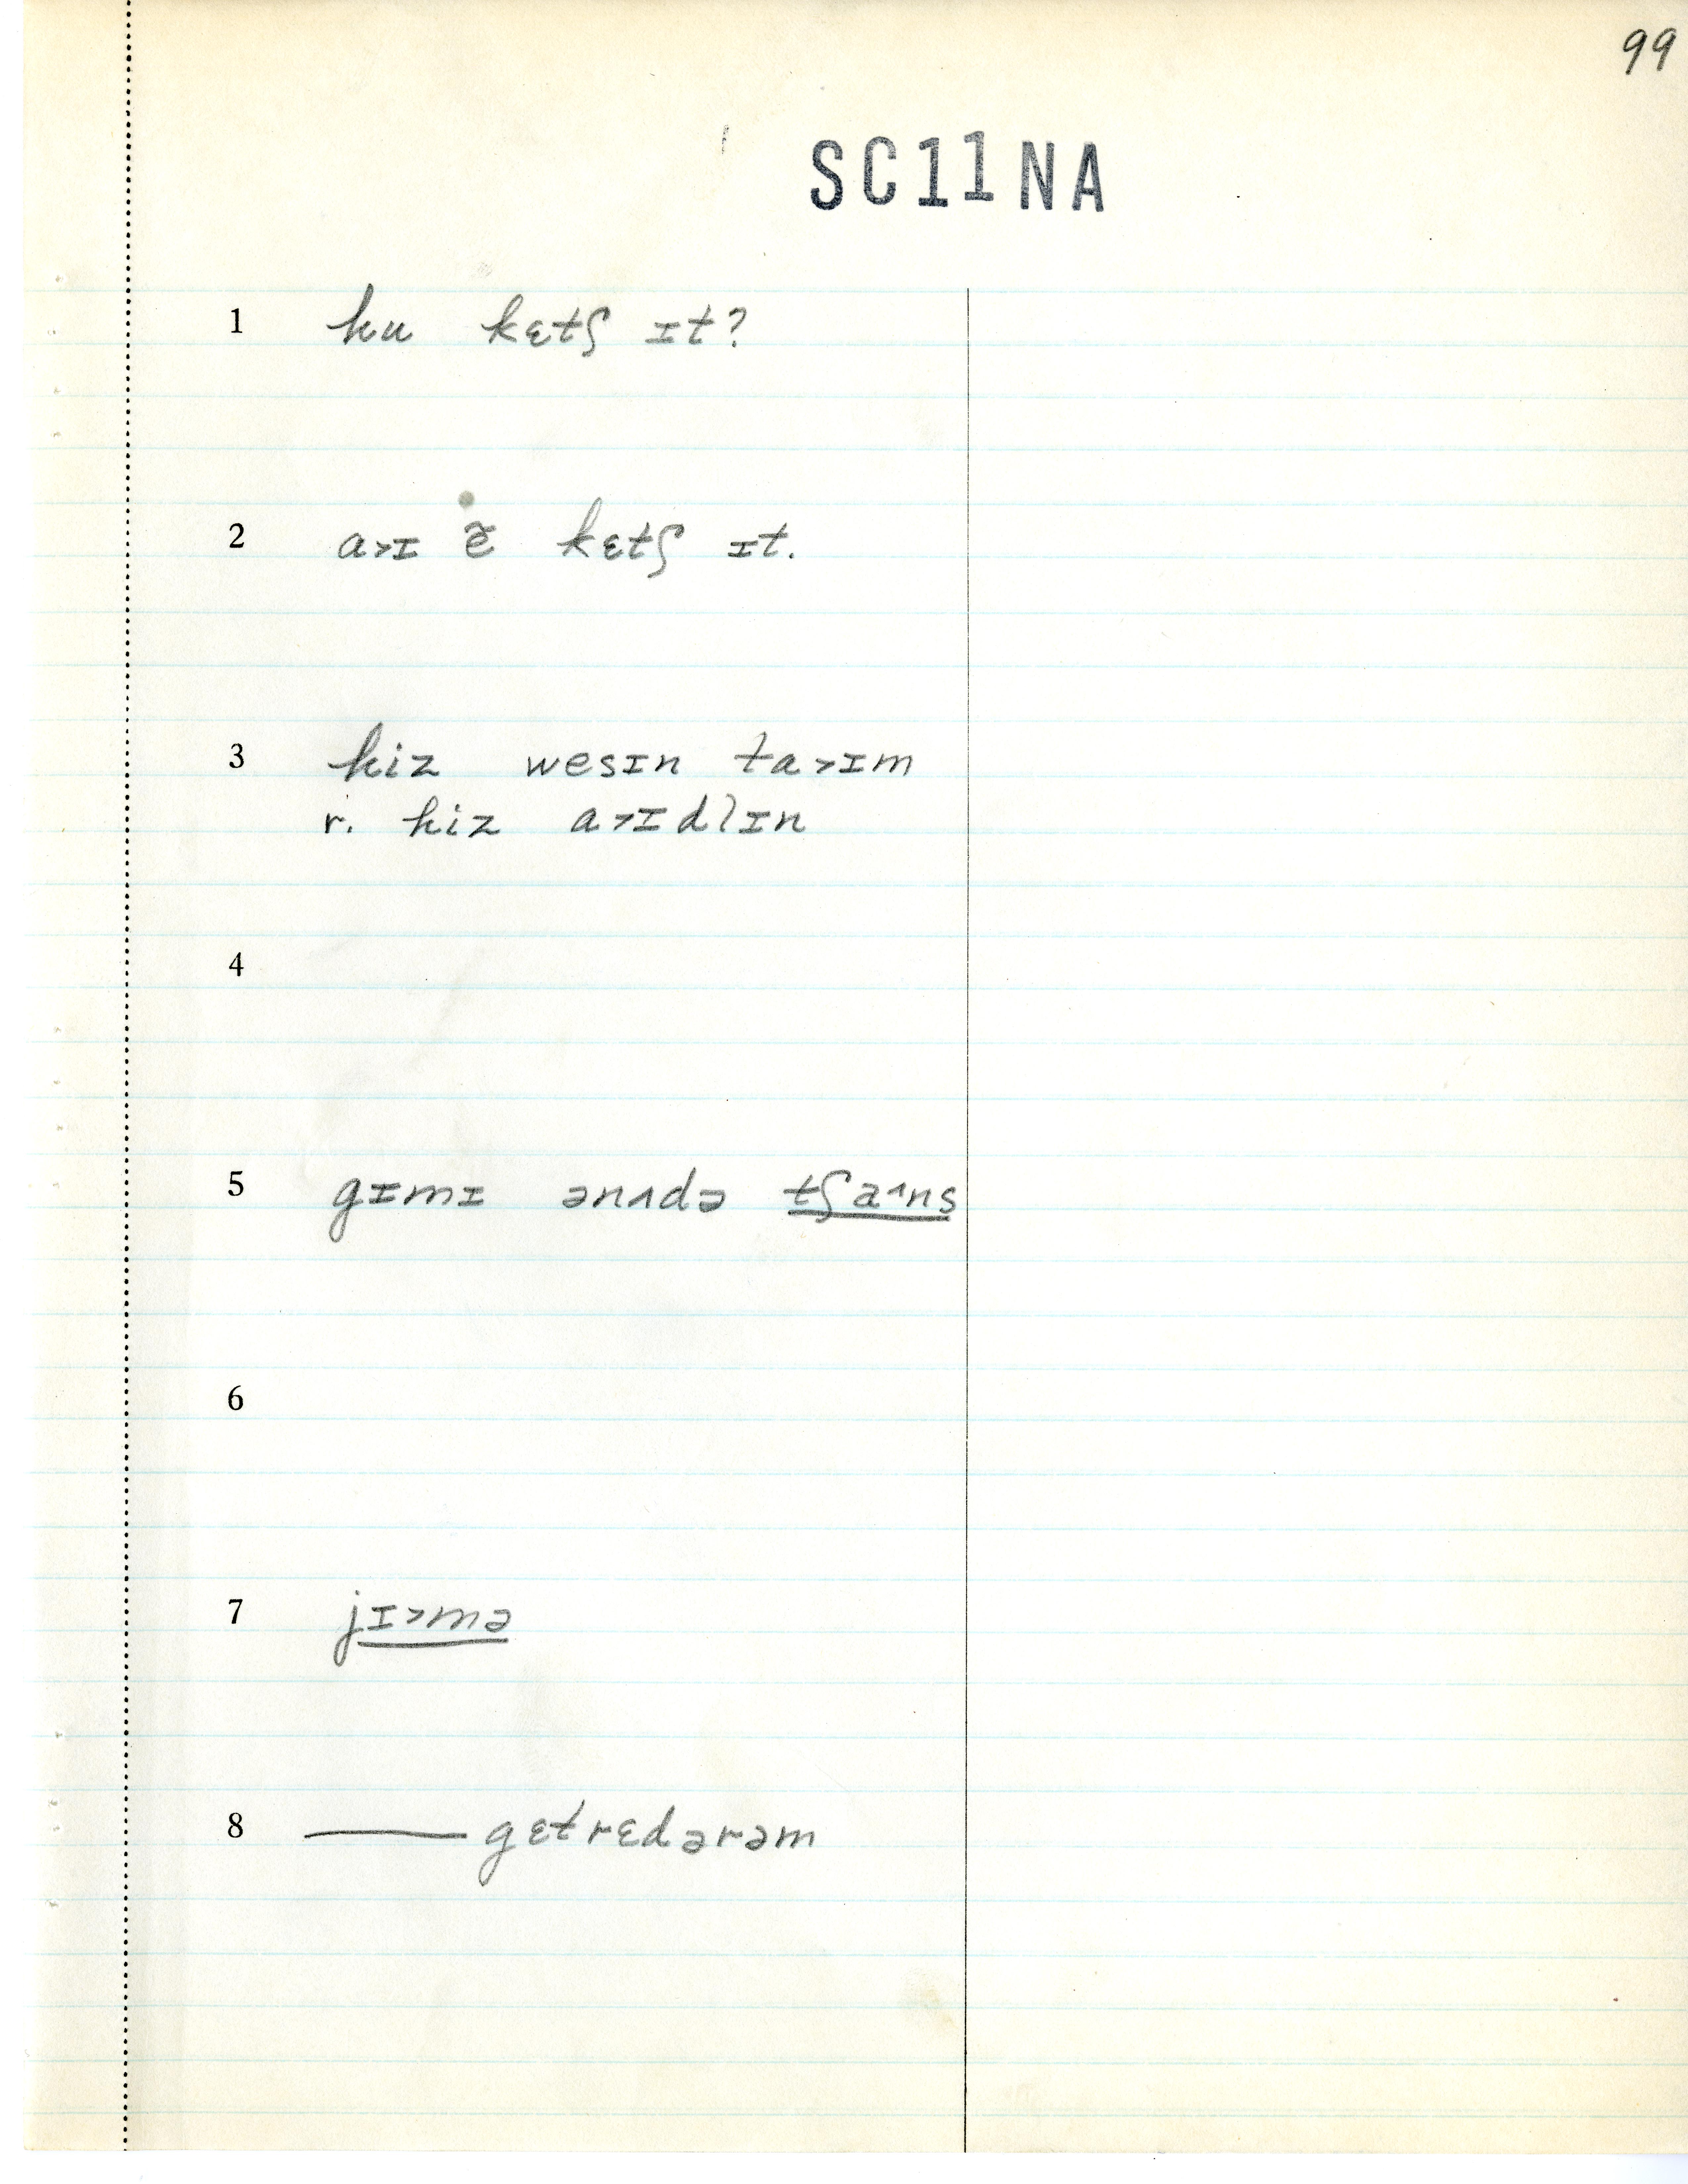 99
SC11NA
1 hu kɛtʃ ɪt?
2 a˃ɪ ẽ kɛtʃ ɪt.
3 hiz wesɪn ta˃ɪm
r. hiz a˃ɪdlɪn
4
5 gɪmɪ ənʌdə tʃa˄ns
6
7 jɪ˃mə
8 —— gɛtrɛdərəm